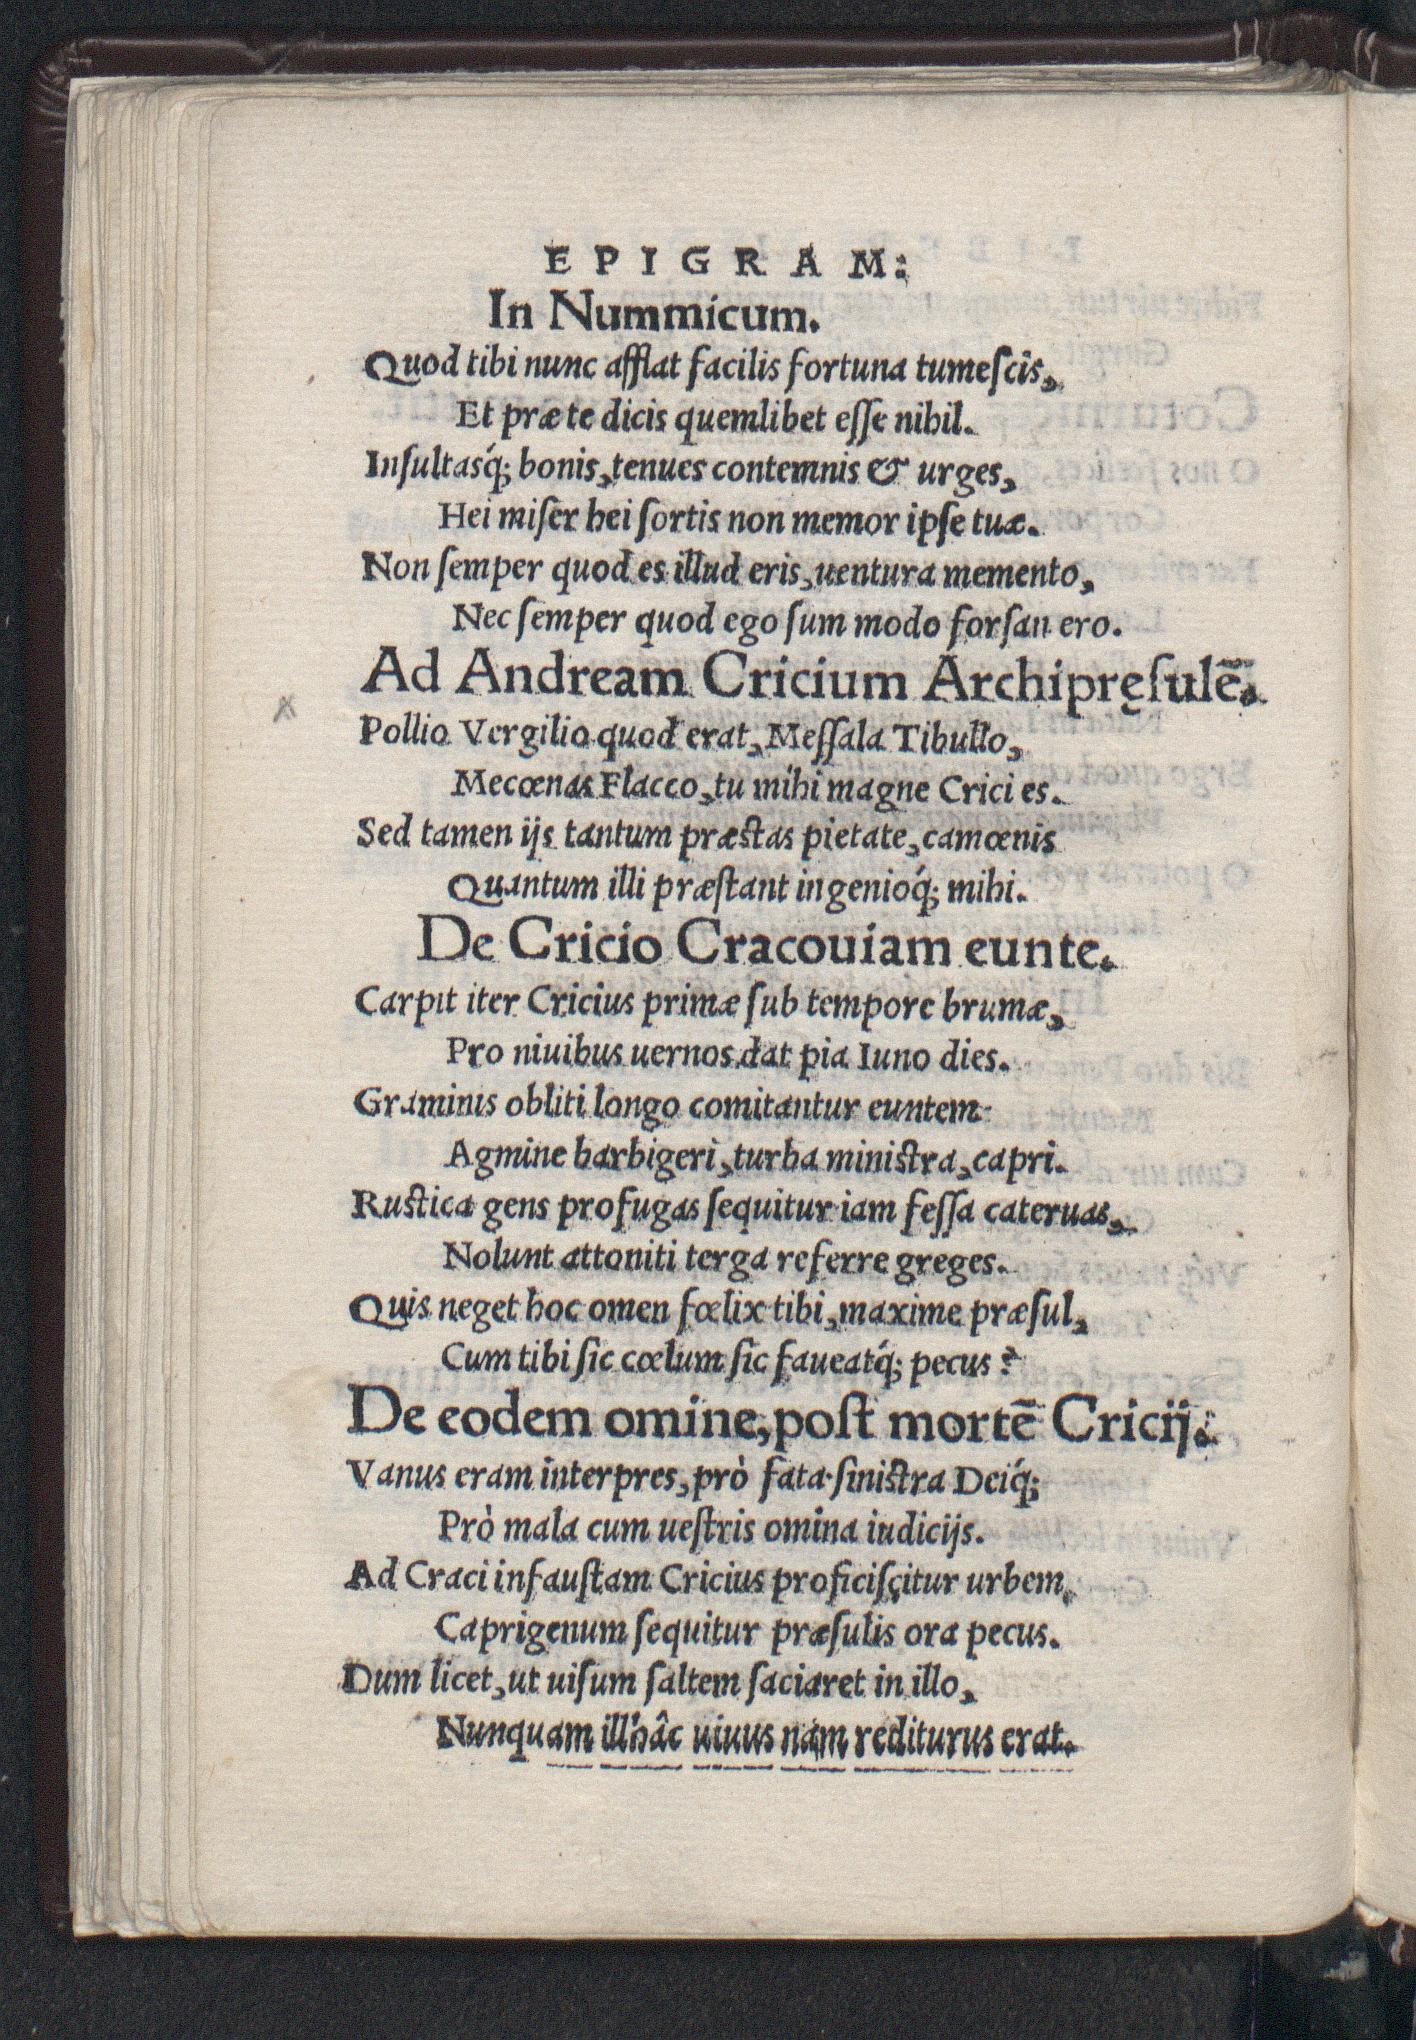 EPIGRAM:
In Nummicum.
Quod tibi nunc afflat facilis fortuna tumeſcis,
Et præ te dicis quemlibet eſſe nihil.
Inſultasq́; bonis, tenues contemnis & urges,
Hei miſer hei ſortis non memor ipſe tuæ.
Non ſemper quod es illud eris, uentura memento,
Nec ſemper quod ego ſum modo forſan ero.
Ad Andream Cricium Archipręſulē.
Pollio Vergilio quod erat, Meſſala Tibullo,
Mecœnas Flacco, tu mihi magne Crici es.
Sed tamen ijs tantum præſtas pietate, camœnis
Quantum illi præſtant ingenioq́; mihi.
De Cricio Cracouiam eunte.
Carpit iter Cricius primæ ſub tempore brumæ,
Pro niuibus uernos dat pia Iuno dies.
Graminis obliti longo comitantur euntem
Agmine barbigeri, turba miniſtra, capri.
Ruſtica gens profugas ſequitur iam feſſa cateruas,
Nolunt attoniti terga referre greges.
Quis neget hoc omen fœlix tibi, maxime præſul,
Cum tibi ſic cœlum ſic faueatq́; pecus?
De eodem omine, poſt mortē Cricij.
Vanus eram interpres, prò fata ſiniſtra Deiq́;
Prò mala cum ueſtris omina iudicijs.
Ad Craci infauſtam Cricius proficiſcitur urbem,
Caprigenum ſequitur præſulis ora pecus.
Dum licet, ut uiſum ſaltem ſaciaret in illo,
Nunquam ill'hâc uiuus nam rediturus erat.